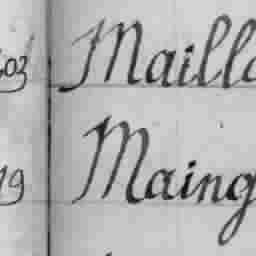 203 Maill
19 Maing